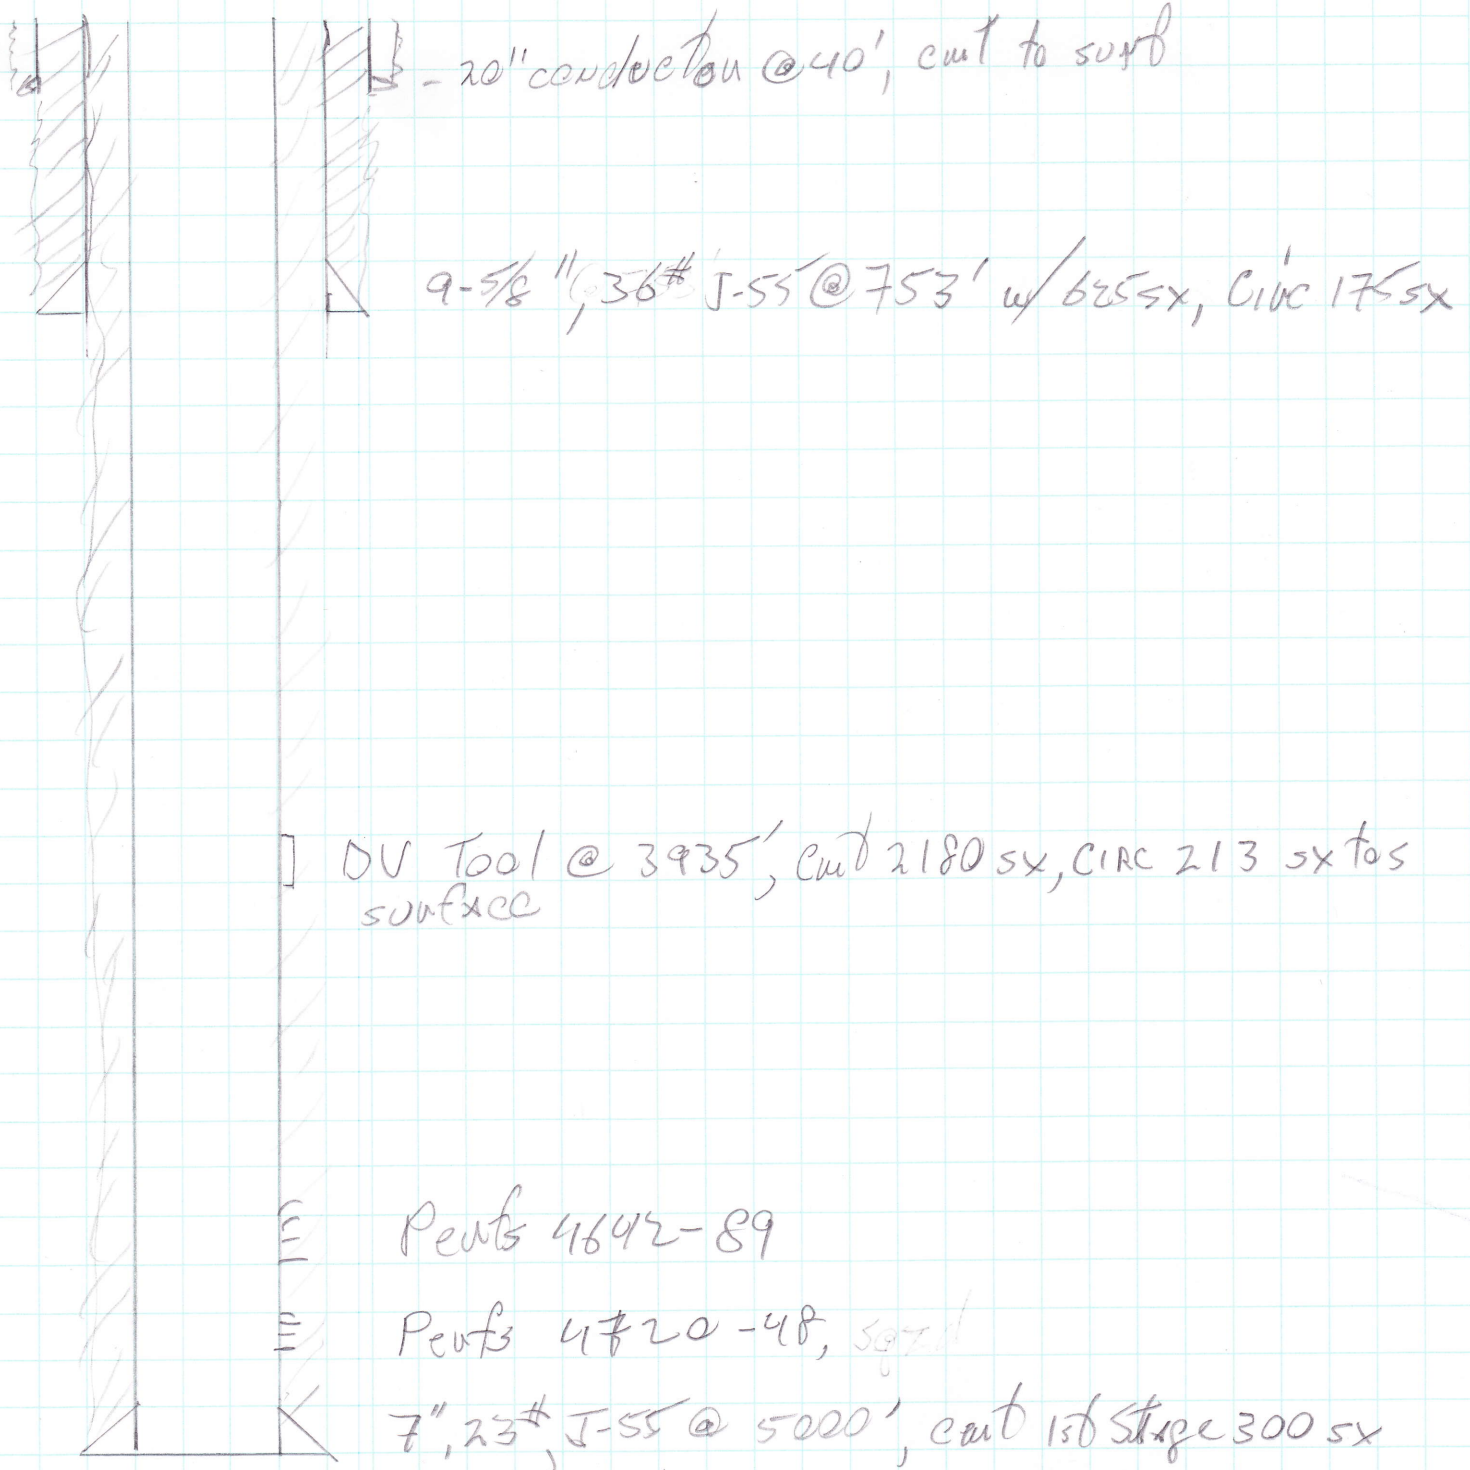 - 20" conductor @ 40', cmt to surf
9-5/8", 36# J-55 @ 753' w/ 625 sx, Circ 175 sx
DV Tool @ 3935', cmt 2180 sx, CIRC 213 sx tos
surface
Perfs 4642-89
Perfs 4720-48, sqzd
7", 23#, J-55 @ 5000', cmt 1st Stage 300 sx